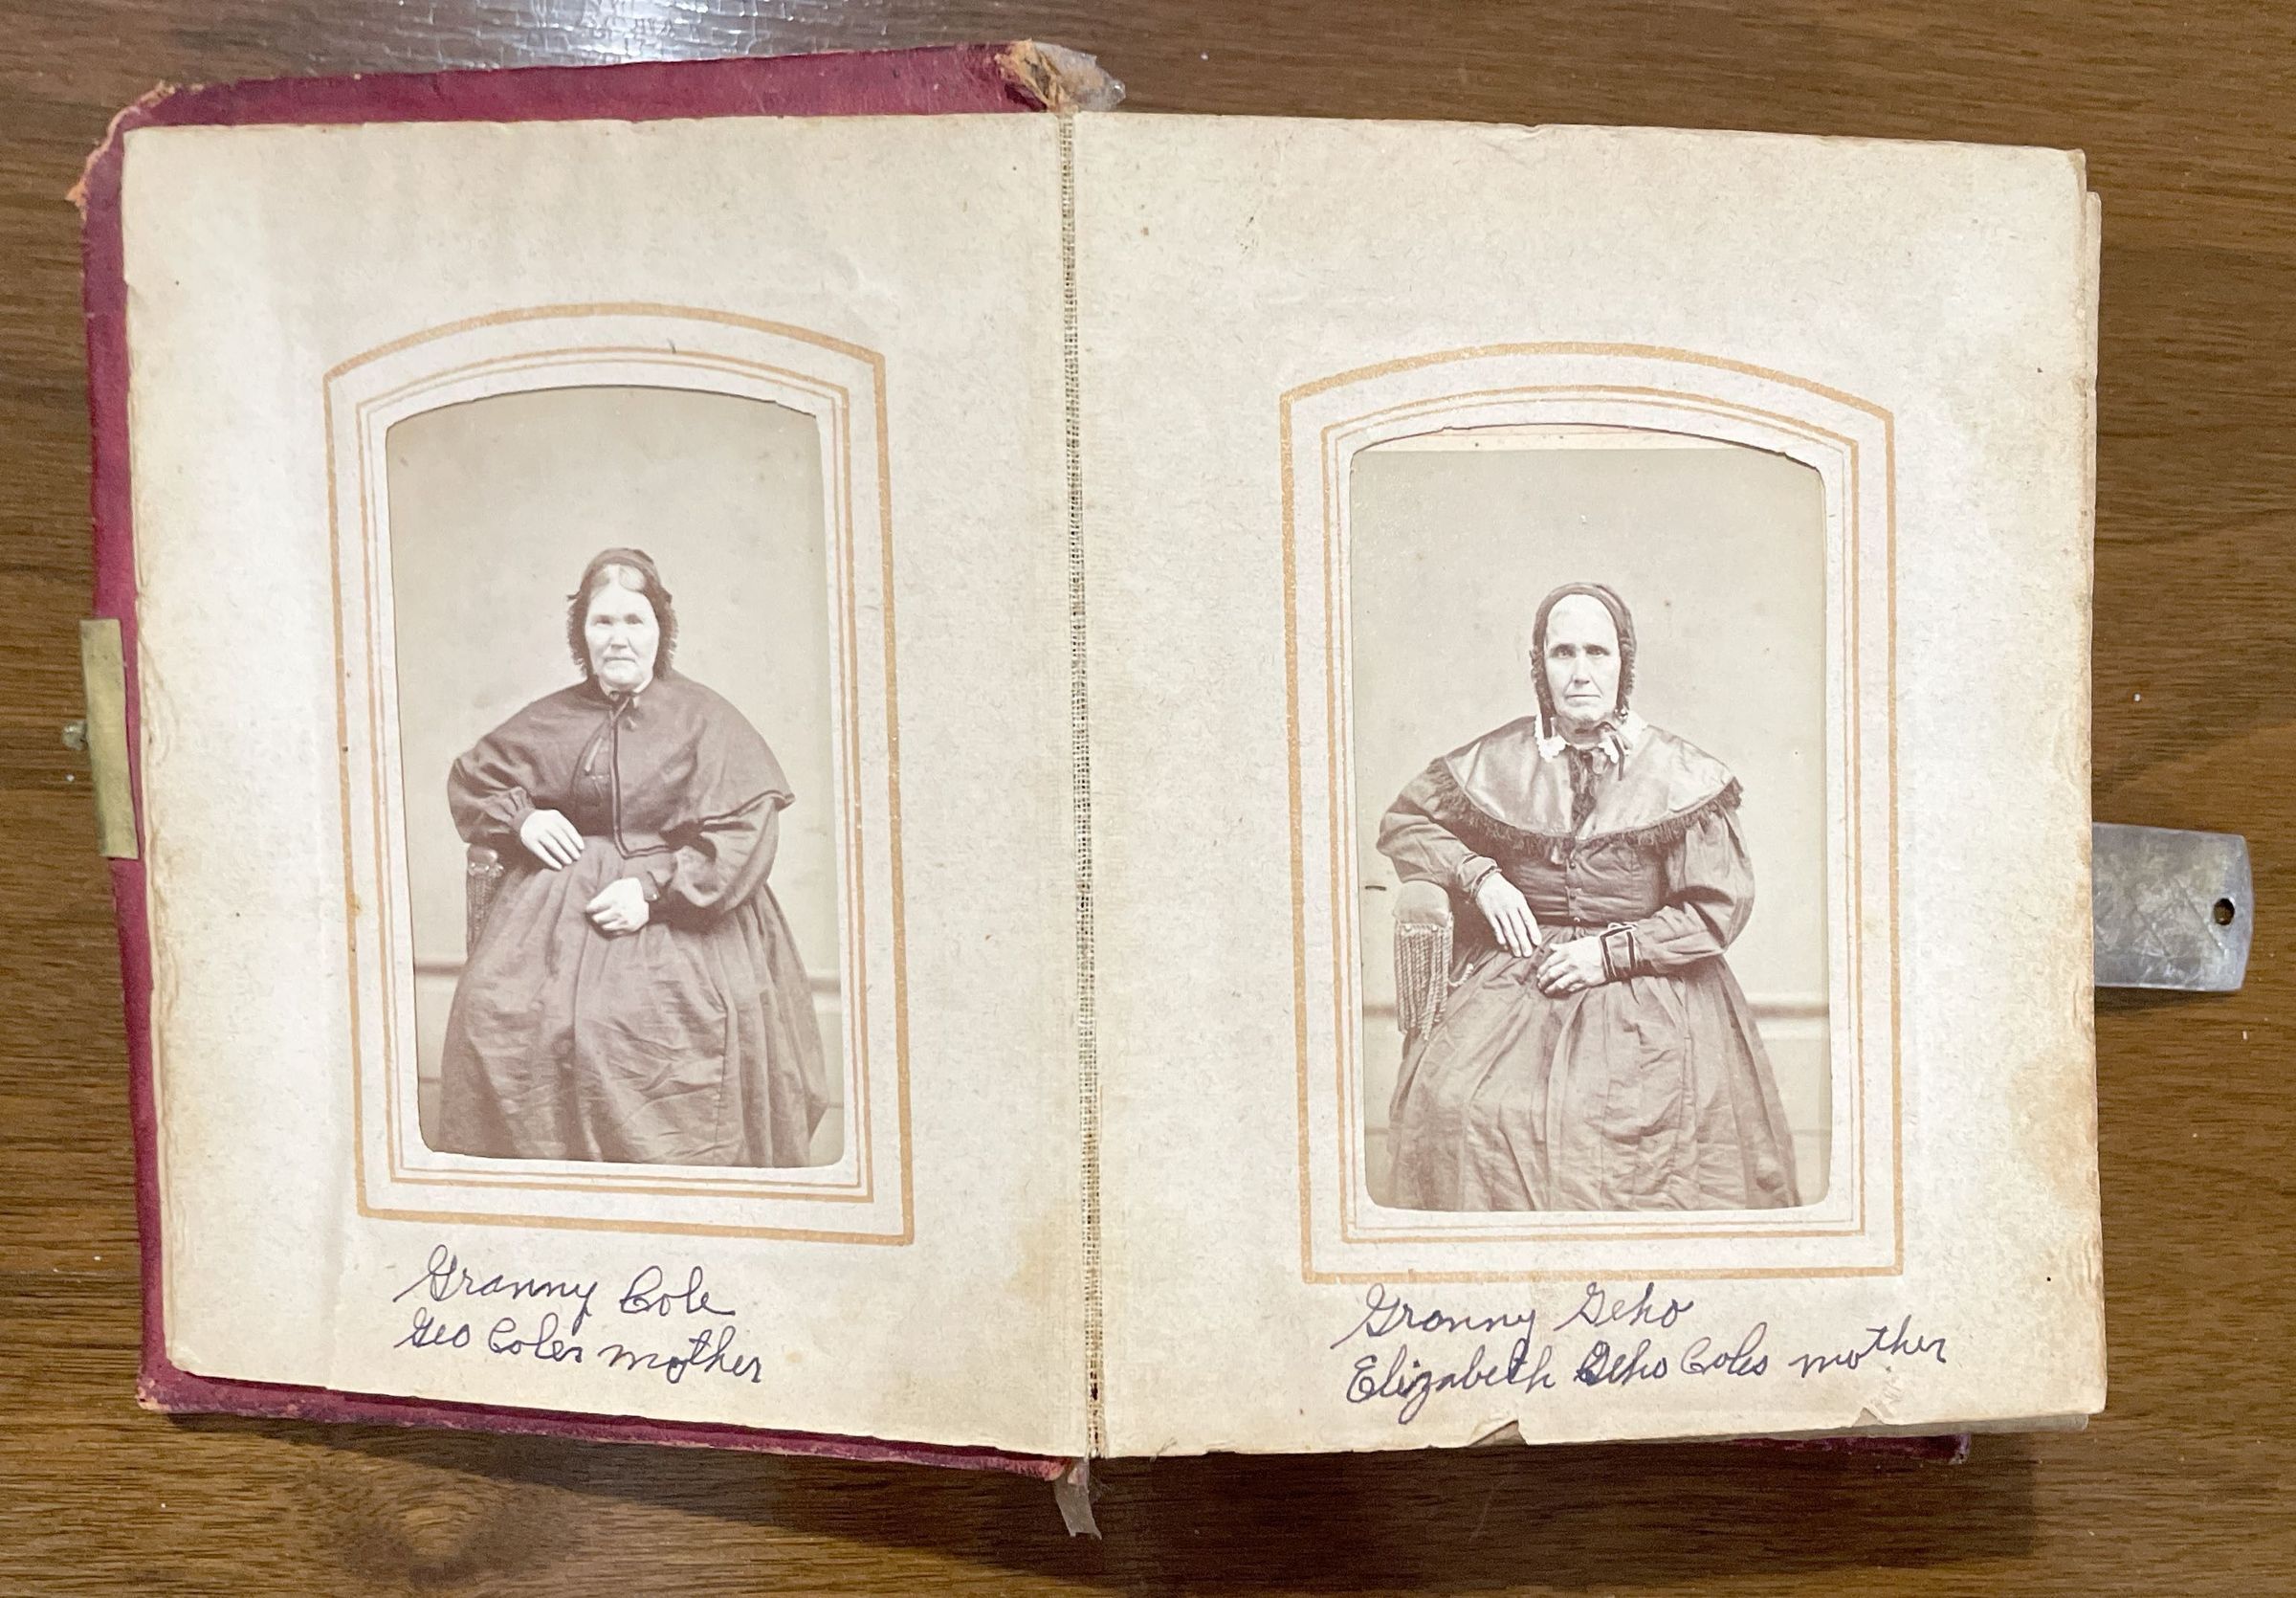 Granny Cole
Geo Coles mother
Granny Geho
Elizabeth Geho Coles mother